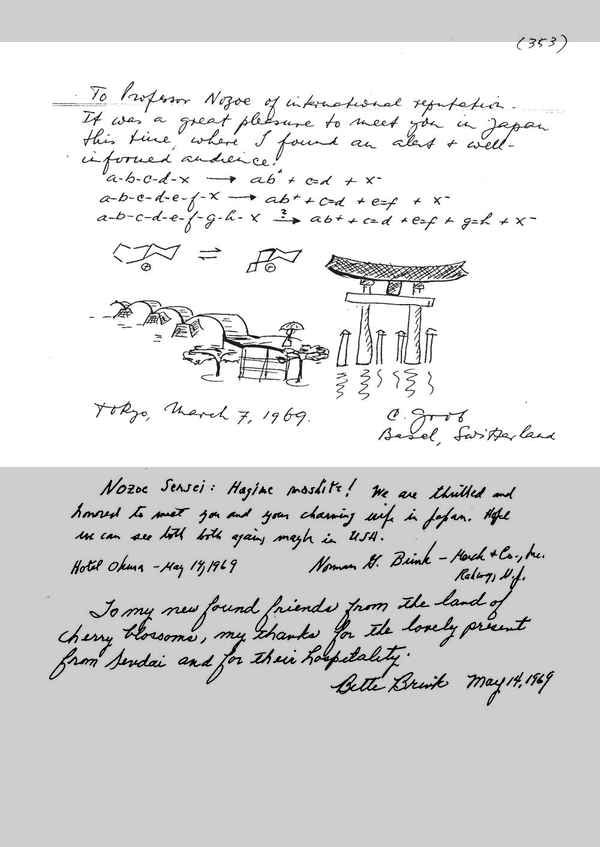 (353)
To Professor Nozoe of international reputation.
It was a great pleasure to meet you in Japan
this time, where I found an alert + well-
informed audience!
a-b-c-d-x → ab⁺ + c=d + x⁻
a-b-c-d-e-f-x → ab⁺ + c=d + e=f + x⁻
a-b-c-d-e-f-g-h-x →? ab⁺ + c=d + e=f + g=h + x⁻
⊕ ⇌ ⊕
Tokyo, March 7, 1969. C. Grob
Basel, Switzerland
Nozoe Sensei: Hagime mashite! We are thrilled and
honored to meet you and your charming wife in Japan. Hope
we can see both both again, maybe in USA.
Hotel Okura - May 14, 1969 Norman G. Brink - Merck & Co., Inc.
Rahway, N.J.
To my new found friends from the land of
cherry blossoms, my thanks for the lovely present
from Sendai and for their hospitality.
Bette Brink May 14, 1969